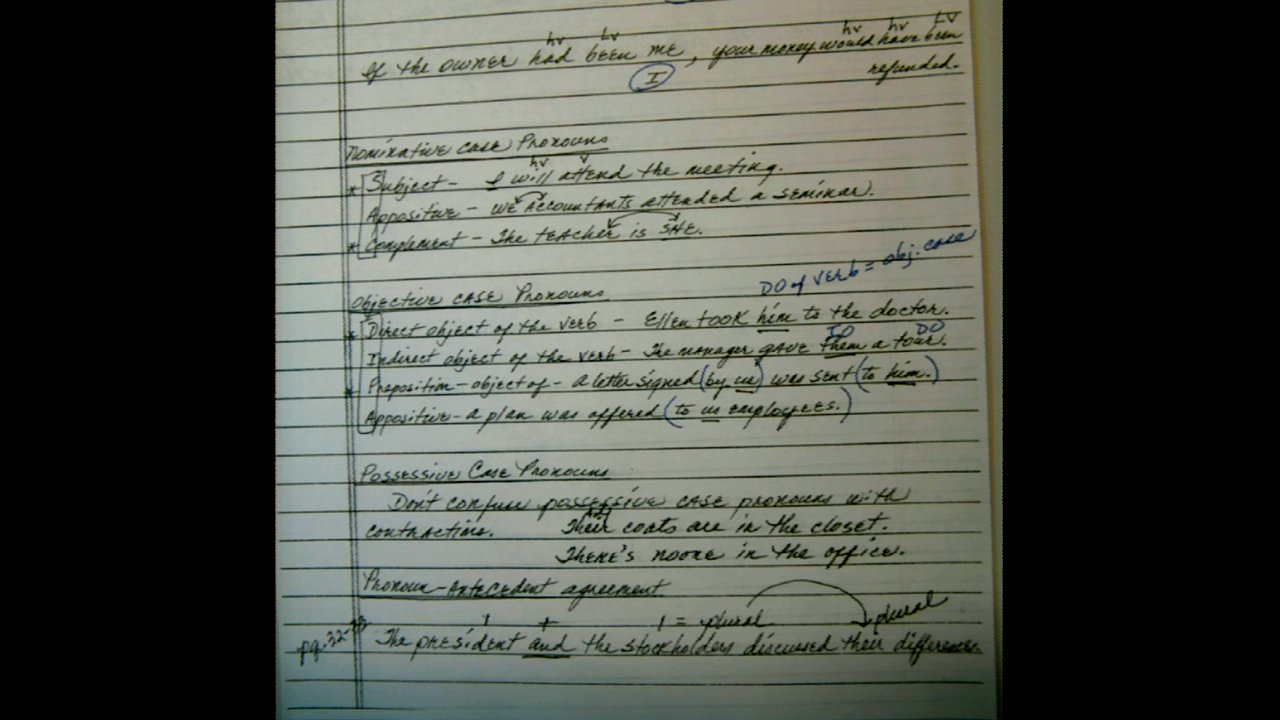 hv hv hv hv hv
If the owner had been me, your money would have been
I refunded.
Nominative Case Pronouns
hv v
* Subject - I will attend the meeting.
Appositive - We accountants attended a seminar.
* Complement - The teacher is SHE.
DO of verb = obj. case
Objective Case Pronouns
* Direct object of the verb - Ellen took him to the doctor.
IO DO
Indirect object of the verb - The manager gave them a tour.
* Preposition - object of - A letter signed (by us) was sent (to him.)
Appositive - A plan was offered (to us employees.)
Possessive Case Pronouns
Don't confuse possessive case pronouns with
contractions. Their coats are in the closet.
There's noone in the office.
Pronoun-Antecedent agreement
1 + 1 = plural plural
pg. 32- The president and the stockholders discussed their differences.